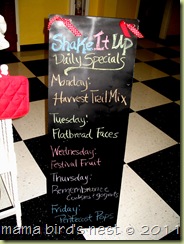 Shake It Up
Daily Specials
Monday:
Harvest Trail Mix
Tuesday:
Flatbread Faces
Wednesday:
Festival Fruit
Thursday:
Remembrance
Cookies
Friday:
Pentecost Pops
mama bird's nest © 2011